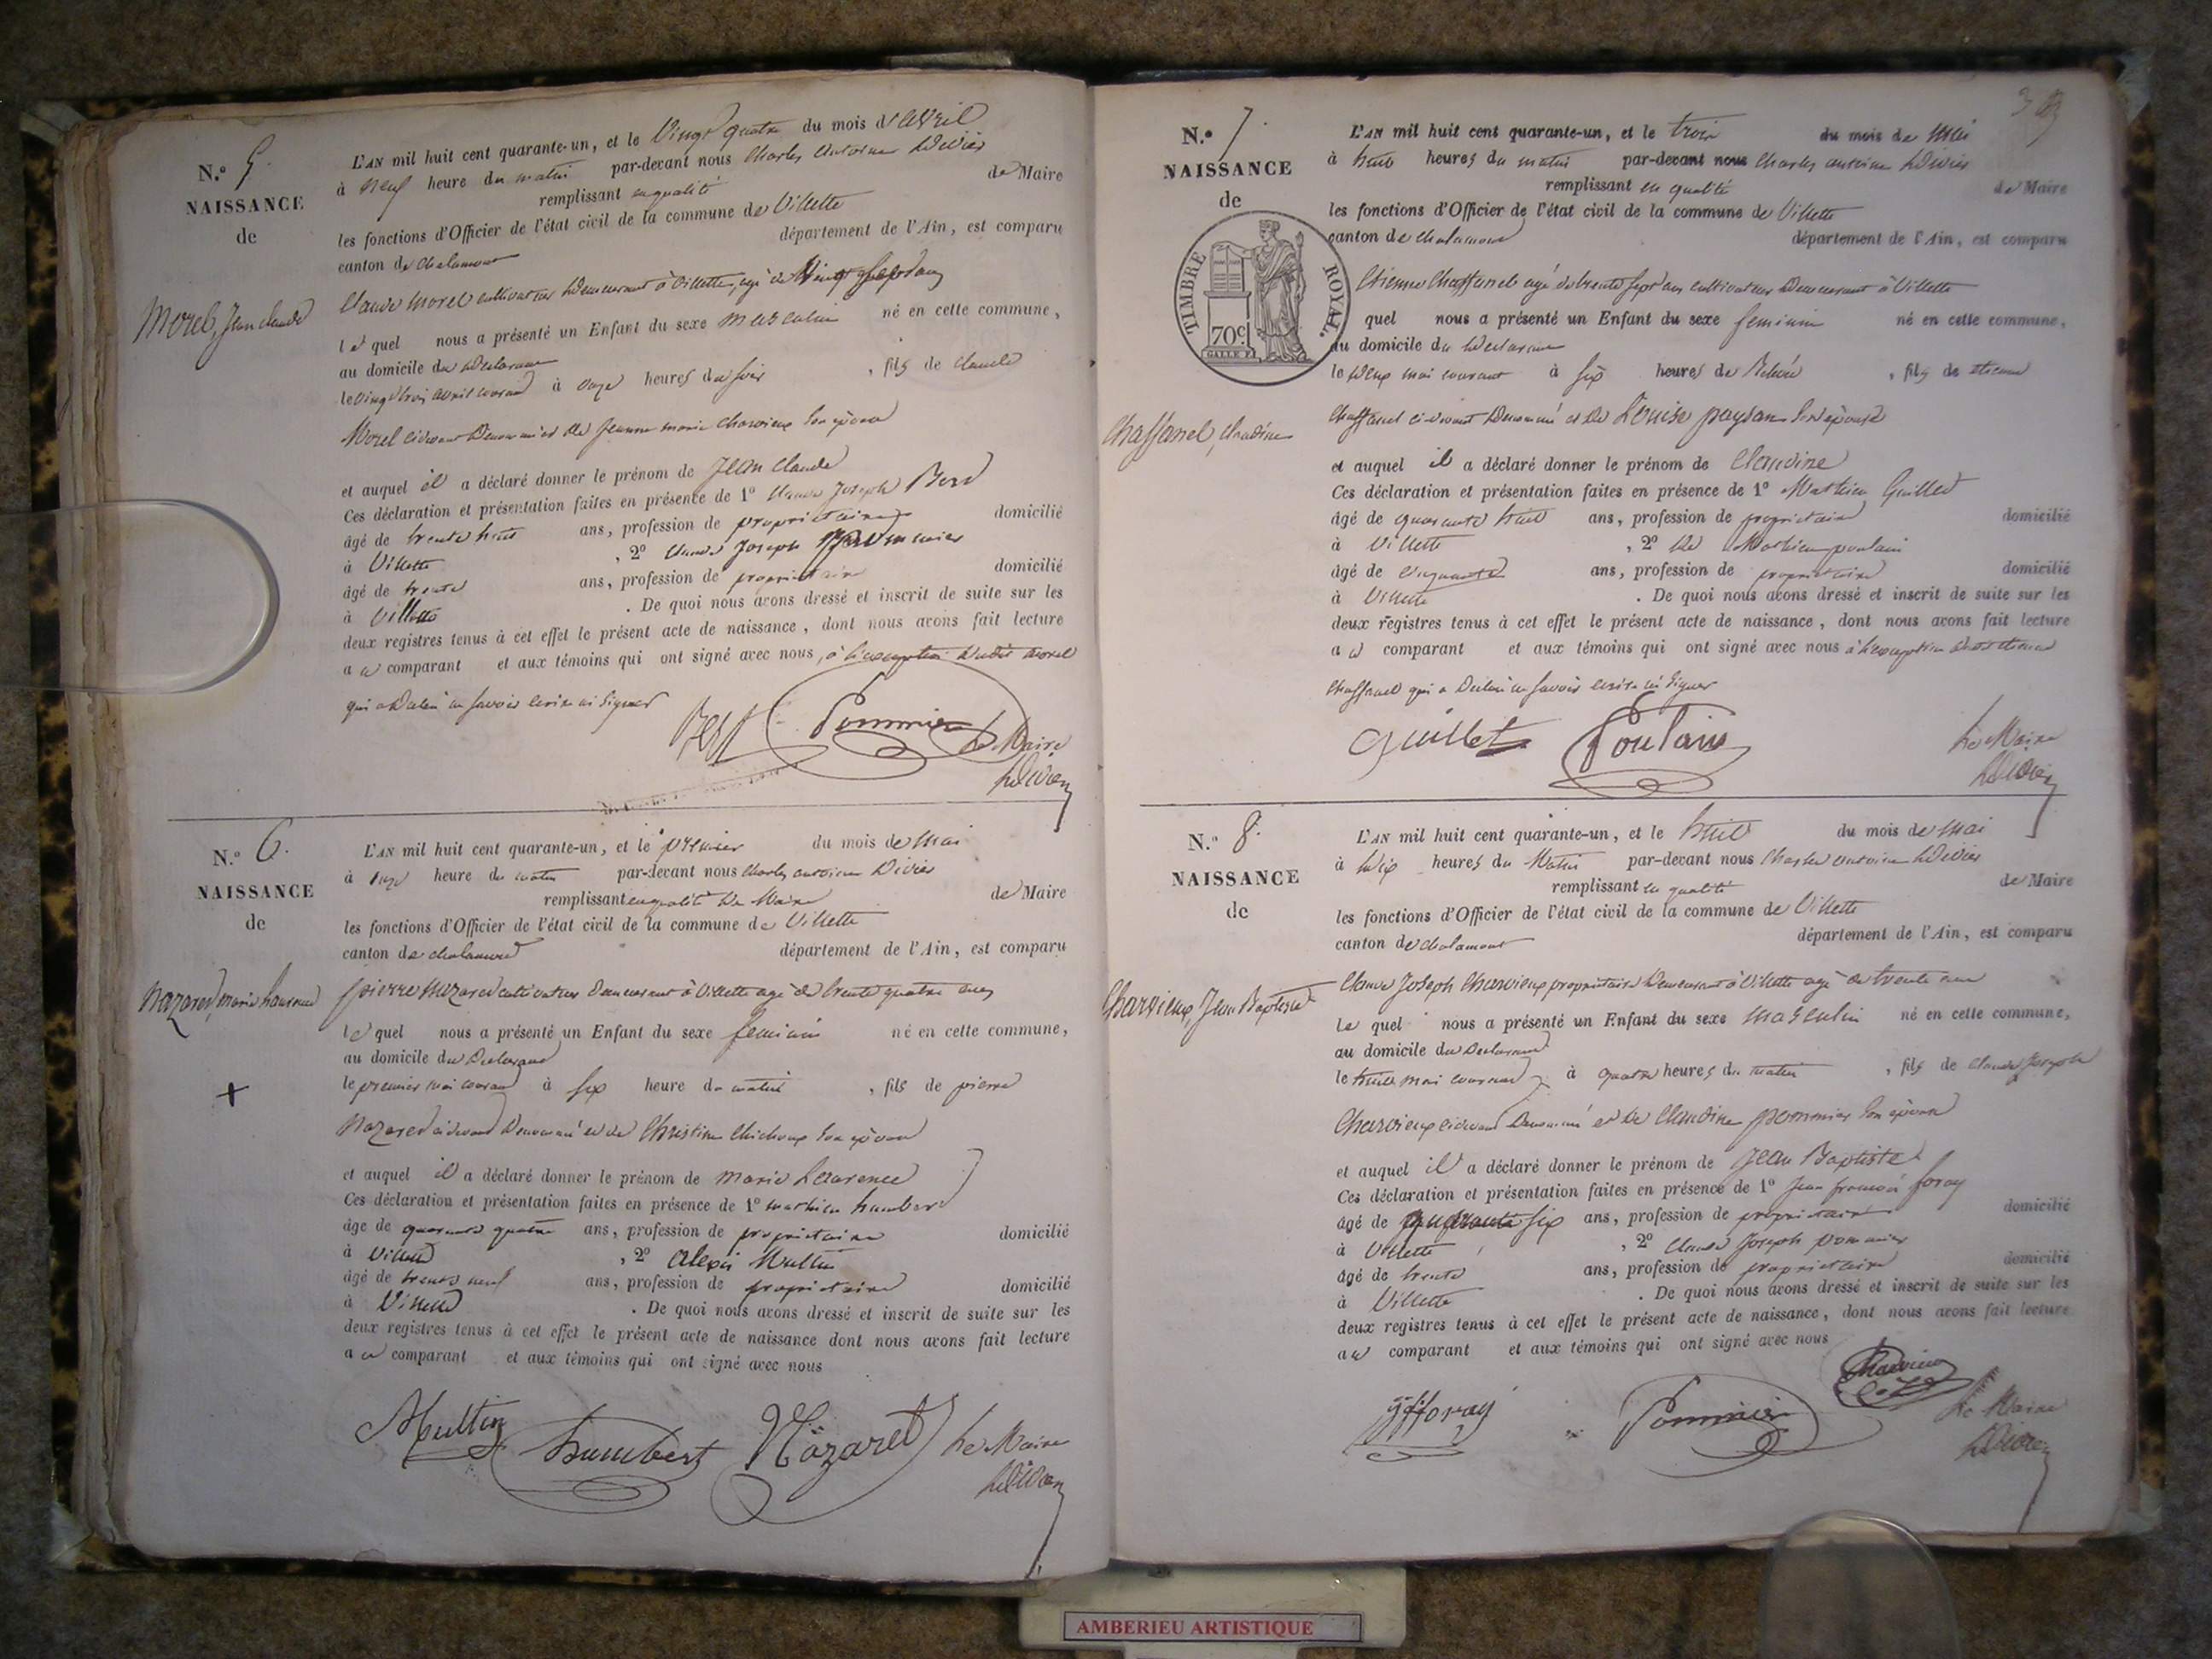 N.º 5.
NAISSANCE
de
Morel, Jean claude
L'AN mil huit cent quarante-un, et le Vingt quatre du mois d'avril
à neuf heure du matin par-devant nous Charles Antoine
remplissant en qualité de Maire
les fonctions d'Officier de l'état civil de la commune de Villette
canton de chalamont département de l'Ain, est comparu
Claude Morel cultivateur demeurant à Villette, agé de vingt
le quel nous a présenté un Enfant du sexe masculin né en cette commune,
au domicile du declarant
le vingt trois avril courant à onze heures du soir, fils de claude
Morel cidevant denommé et de jeanne marie charvieux son epouse
et auquel il a déclaré donner le prénom de Jean Claude
Ces déclaration et présentation faites en présence de 1º Claude Joseph
âgé de trente huit ans, profession de propriétaire domicilié
à Villette, 2º Claude Joseph Pommier
âgé de trente ans, profession de propriétaire domicilié
à Villette. De quoi nous avons dressé et inscrit de suite sur les
deux registres tenus à cet effet le présent acte de naissance, dont nous avons fait lecture
au comparant et aux témoins qui ont signé avec nous, à l'exception dudit morel
qui a declaré ne savoir ecrire ni signer
Pommier Le Maire
N.º 6.
NAISSANCE
de
Nazaret, marie laurence
+
L'AN mil huit cent quarante-un, et le premier du mois de mai
à onze heure du matin par-devant nous charles antoine
remplissant en qualité de Maire de Maire
les fonctions d'Officier de l'état civil de la commune de Villette
canton de chalamont département de l'Ain, est comparu
pierre Nazaret cultivateur demeurant à Villette agé de trente quatre ans
le quel nous a présenté un Enfant du sexe feminin né en cette commune,
au domicile du declarant
le premier mai courant à six heure du matin, fils de pierre
Nazaret cidevant denommé et de Christine son epouse
et auquel il a déclaré donner le prénom de marie Laurence
Ces déclaration et présentation faites en présence de 1º mathieu humbert
âgé de quarante quatre ans, profession de propriétaire domicilié
à Villette, 2º Alexis Multin
âgé de trente neuf ans, profession de propriétaire domicilié
à Villette. De quoi nous avons dressé et inscrit de suite sur les
deux registres tenus à cet effet le présent acte de naissance dont nous avons fait lecture
au comparant et aux témoins qui ont signé avec nous
Multin humbert Nazaret Le Maire
N.º 7.
NAISSANCE
de
TIMBRE ROYAL.
70c
Chaffanel, claudine
L'AN mil huit cent quarante-un, et le trois du mois de Mai
à huit heures du matin par-devant nous Charles antoine
remplissant en qualité de Maire
les fonctions d'Officier de l'état civil de la commune de Villette
canton de chalamont département de l'Ain, est comparu
Etienne Chaffanel agé de trente sept ans cultivateur demeurant à Villette
quel nous a présenté un Enfant du sexe feminin né en cette commune,
au domicile du declarant
le deux mai courant à six heures de, fils de etienne
Chaffanel ci-devant denommé et de Louise paysan son epouse
et auquel il a déclaré donner le prénom de Claudine
Ces déclaration et présentation faites en présence de 1º Mathieu Guillet
âgé de quarante huit ans, profession de propriétaire domicilié
à Villette, 2º de Mathieu poulain
âgé de cinquante ans, profession de propriétaire domicilié
à Villette. De quoi nous avons dressé et inscrit de suite sur les
deux registres tenus à cet effet le présent acte de naissance, dont nous avons fait lecture
au comparant et aux témoins qui ont signé avec nous à l'exception
Chaffanel qui a declaré ne savoir ecrire ni signer
Guillet Poulain Le Maire
N.º 8.
NAISSANCE
de
Charvieux, Jean Baptiste
L'AN mil huit cent quarante-un, et le huit du mois de mai
à dix heures du Matin par-devant nous Charles antoine
remplissant en qualité de Maire
les fonctions d'Officier de l'état civil de la commune de Villette
canton de chalamont département de l'Ain, est comparu
Claude Joseph Charvieux propriétaire demeurant à Villette agé de trente ans
Le quel nous a présenté un Enfant du sexe masculin né en cette commune,
au domicile du declarant
le huit mai courant à quatre heures du matin, fils de Claude Joseph
Charvieux cidevant denommé et de Claudine pommier son epouse
et auquel il a déclaré donner le prénom de Jean Baptiste
Ces déclaration et présentation faites en présence de 1º Jean françois foray
âgé de quarante six ans, profession de propriétaire domicilié
à Villette, 2º Claude Joseph Pommier
âgé de trente ans, profession de propriétaire domicilié
à Villette. De quoi nous avons dressé et inscrit de suite sur les
deux registres tenus à cet effet le présent acte de naissance, dont nous avons fait lecture
au comparant et aux témoins qui ont signé avec nous
Charvieux
foray Pommier Le Maire
AMBERIEU ARTISTIQUE